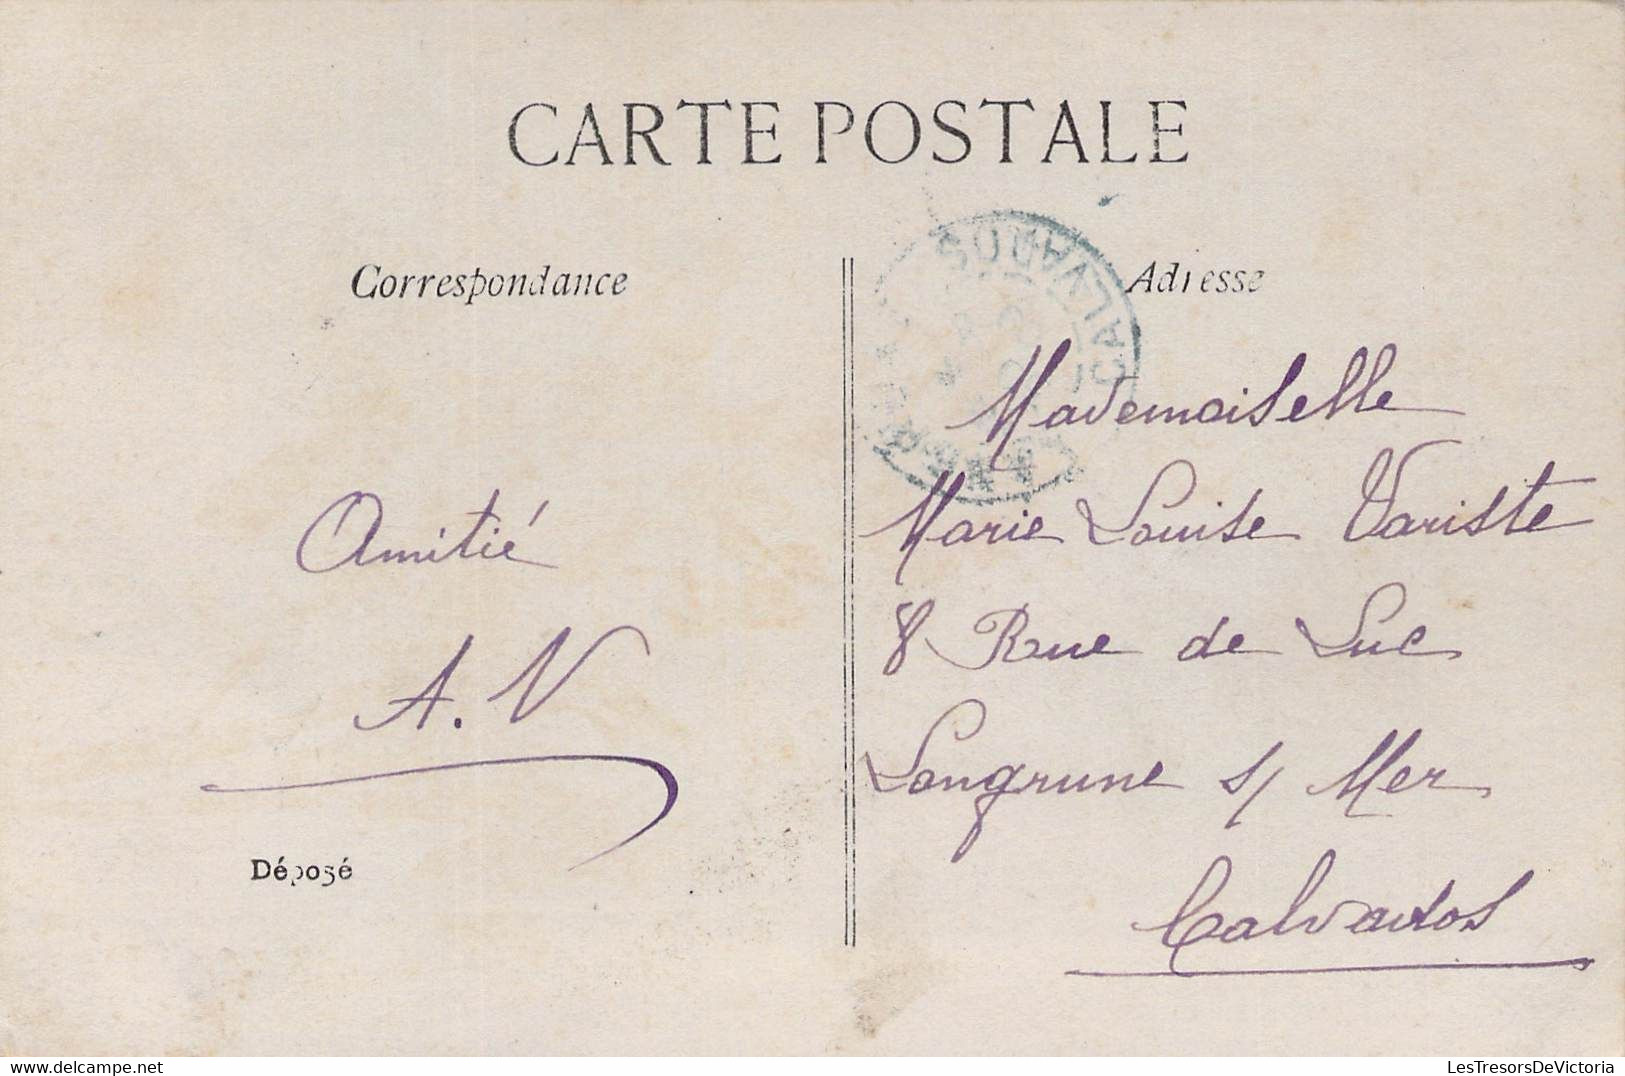 CARTE POSTALE
Correspondance
Adresse
CALVADOS
Amitié
A. V
Déposé
Mademoiselle
Marie Louise Variste
8 Rue de Luc
Langrune s/ Mer
Calvados
www.delcampe.net
LesTresorsDeVictoria